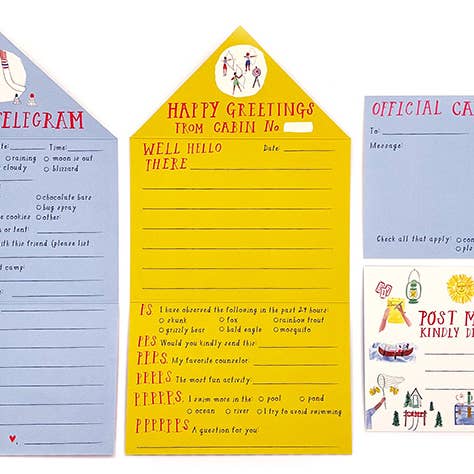 TELEGRAM
Time:
raining moon is out
cloudy blizzard
chocolate bars
bug spray
cookies other:
or tent:
with this friend (please list
camp:
HAPPY GREETINGS
FROM CABIN No
WELL HELLO Date:
THERE
P.S. I have observed the following in the past 24 hours:
skunk fox rainbow trout
grizzly bear bald eagle mosquito
P.P.S. Would you kindly send this:
P.P.P.S. My favorite counselor:
P.P.P.P.S. The most fun activity:
P.P.P.P.P.S. I swim more in the: pool pond
ocean river I try to avoid swimming
P.P.P.P.P.P.S. A question for you!
OFFICIAL CA
To:
Message:
Check all that apply: con
ple
POST M
KINDLY D